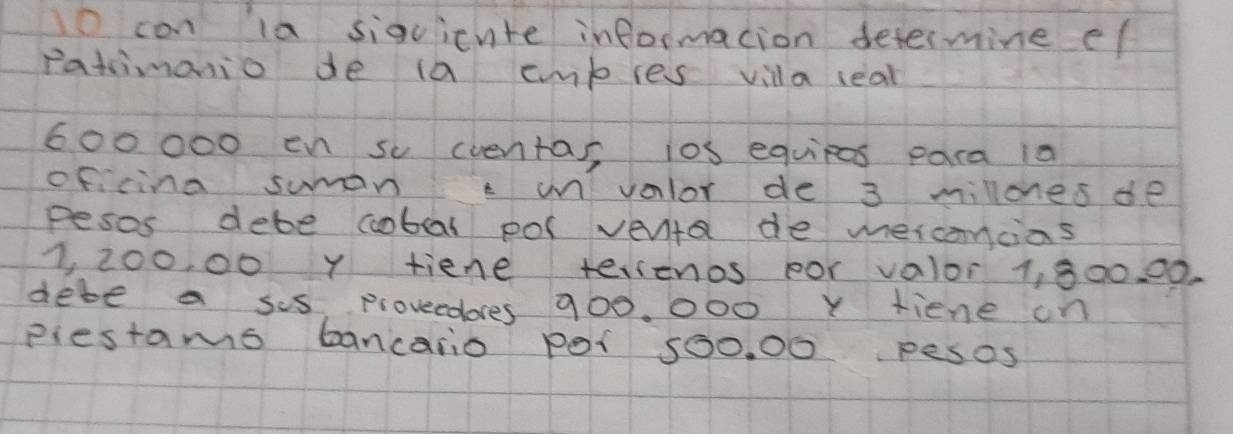 10 con la siguiente informacion determine el
Patrimonio de la empres villa real
600 000 en su cuentas, los equipos para la
oficina suman un valor de 3 millones de
pesos debe cobrar por venta de mercancias
1,200,00 y tiene terrenos por valor 1,800.00.
debe a sus proveedores 900.000 y tiene un
prestamo bancario por 500.00 pesos